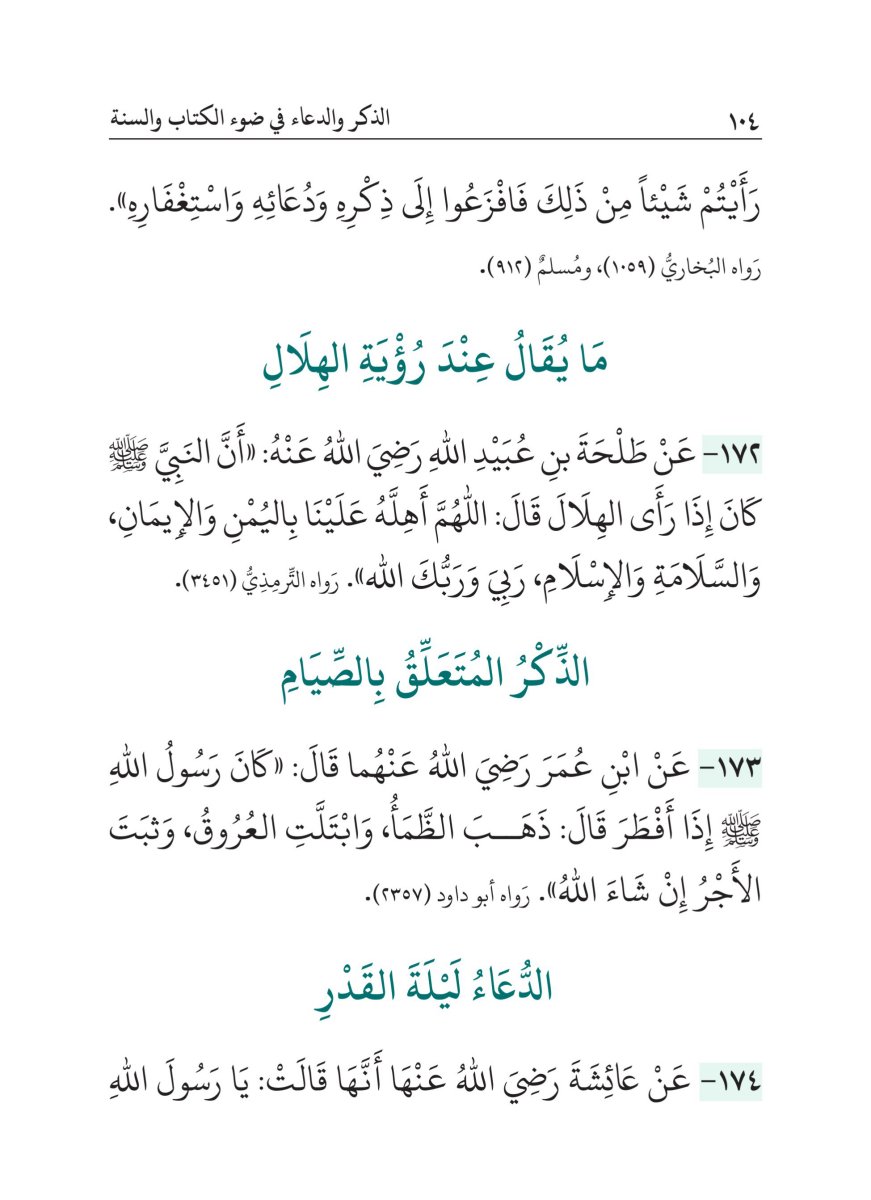 ١٠٤ الذكر والدعاء في ضوء الكتاب والسنة
رَأَيْتُمْ شَيْئاً مِنْ ذَلِكَ فَافْزَعُوا إِلَى ذِكْرِهِ وَدُعَائِهِ وَاسْتِغْفَارِهِ».
رَواه البُخاريُّ (١٠٥٩)، ومُسلمٌ (٩١٢).
مَا يُقَالُ عِنْدَ رُؤْيَةِ الهِلَالِ
١٧٢- عَنْ طَلْحَةَ بنِ عُبَيْدِ اللهِ رَضِيَ اللهُ عَنْهُ: «أَنَّ النَبِيَّ ﷺ
كَانَ إِذَا رَأَى الهِلَالَ قَالَ: اللَّهُمَّ أَهِلَّهُ عَلَيْنَا بِاليُمْنِ وَالإِيمَانِ،
وَالسَّلَامَةِ وَالإِسْلَامِ، رَبِيَ وَرَبُّكَ الله». رَواه التِّرمِذِيُّ (٣٤٥١).
الذِّكْرُ المُتَعَلِّقُ بِالصِّيَامِ
١٧٣- عَنْ ابْنِ عُمَرَ رَضِيَ اللهُ عَنْهُما قَالَ: «كَانَ رَسُولُ اللهِ
ﷺ إِذَا أَفْطَرَ قَالَ: ذَهَـــبَ الظَّمَأُ، وَابْتَلَّتِ العُرُوقُ، وَثبَتَ
الأَجْرُ إِنْ شَاءَ اللهُ». رَواه أبو داود (٢٣٥٧).
الدُّعَاءُ لَيْلَةَ القَدْرِ
١٧٤- عَنْ عَائِشَةَ رَضِيَ اللهُ عَنْهَا أَنَّهَا قَالَتْ: يَا رَسُولَ اللهِ